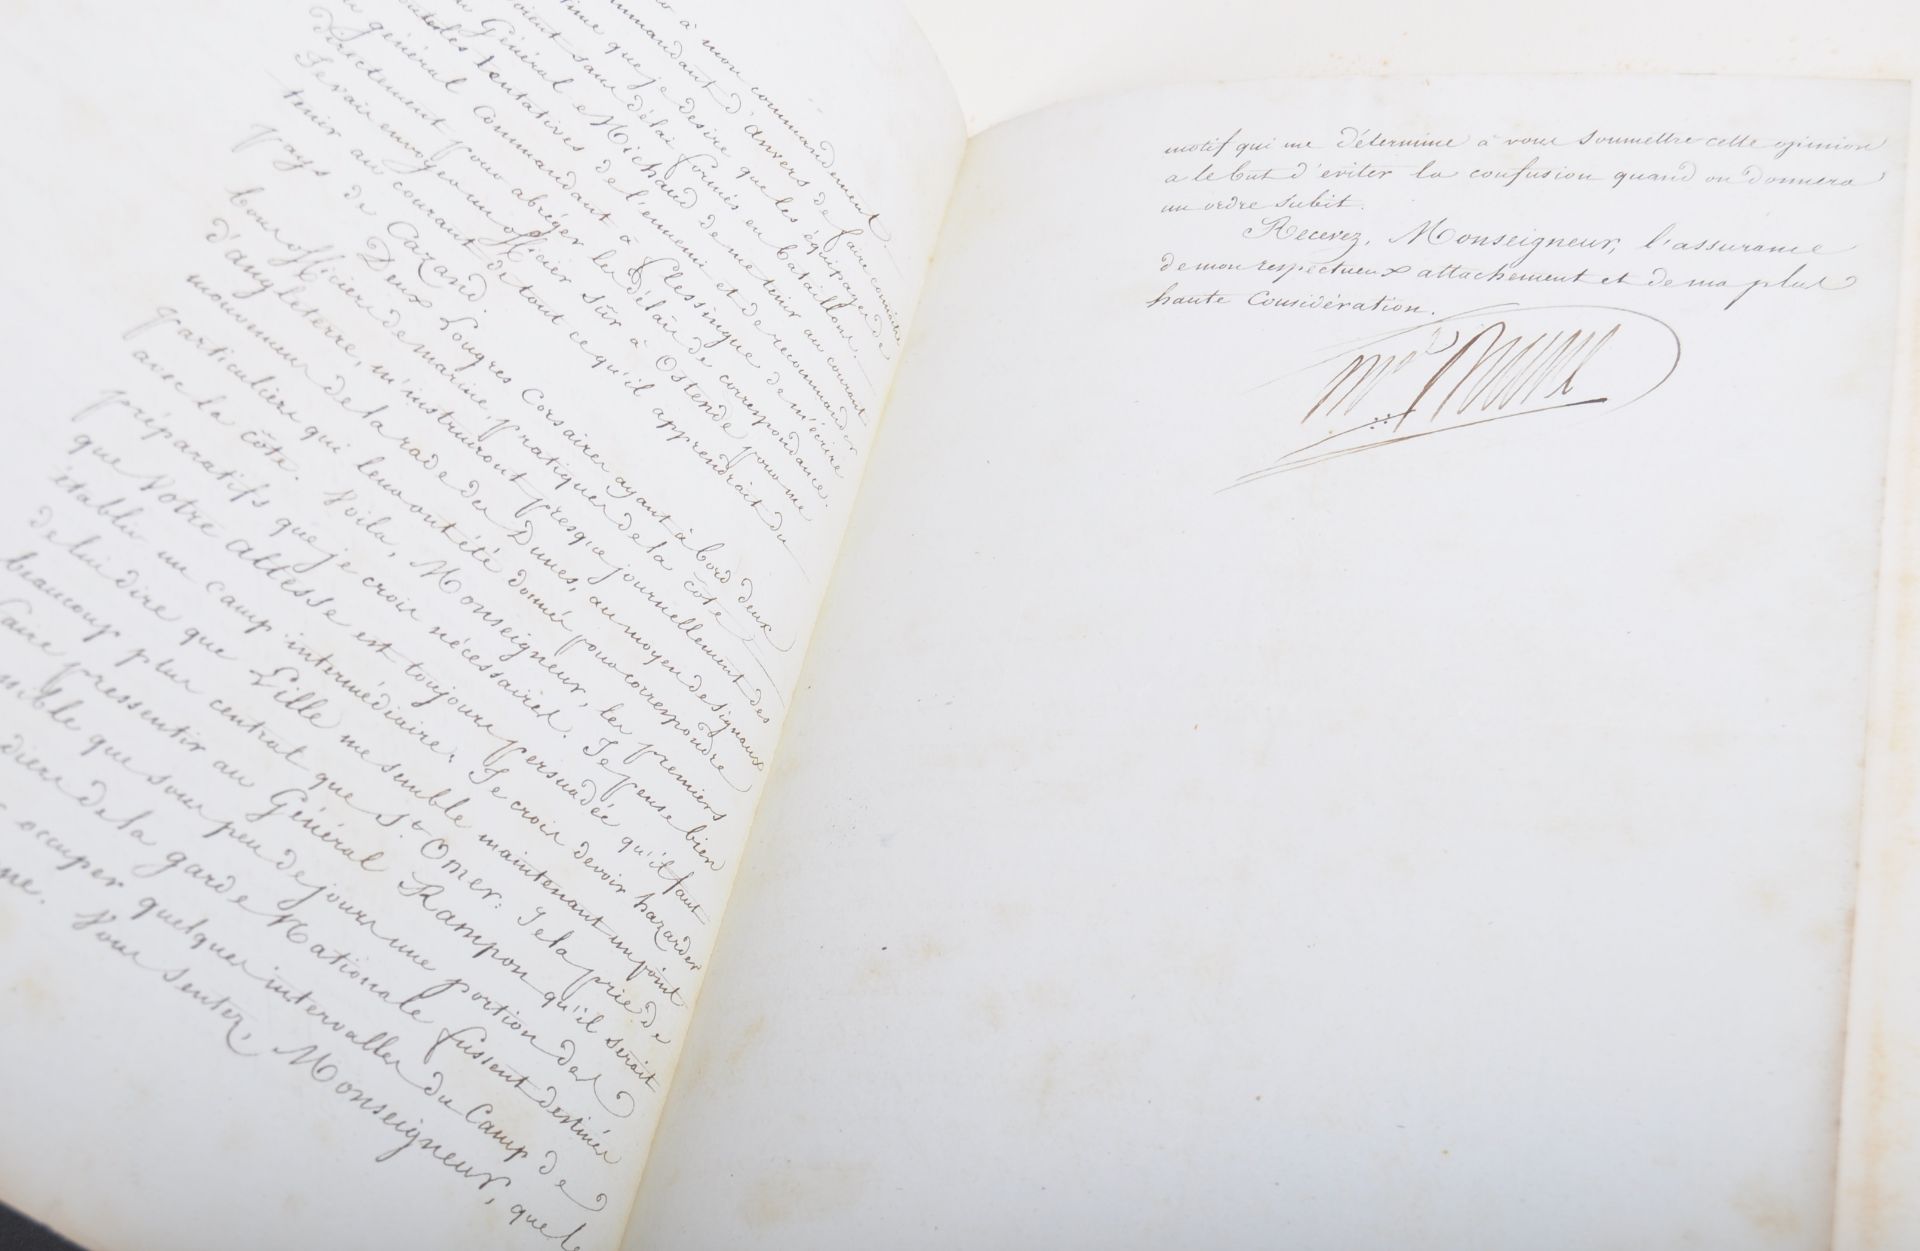 à mon commandement.
commandant d'anvers de faire connaitre
que je desire que les équipages de
soient sans délai formés en bataillons.
Général Michaud de me tenir au courant
toutes les tentatives de l'ennemi et de recommander
au général Commandant à Flessingue de m'écrire
directement pour abréger les délais de correspondance.
J'envoye un officier sûr à Ostende pour me
tenir au courant de tout ce qu'il apprendrait du
pays de Cazand.
Deux Lougres Corsaires ayant à bord deux
bons officiers de marine, pratiques de la côte
d'angleterre, m'instruiront presque journellement des
mouvemens de la rade des Dunes, au moyen de signaux
particuliers qui leur ont été donnés pour correspondre
avec la côte. Voila, Monseigneur, les premiers
préparatifs que je crois nécessaires. Je pense bien
que Votre altesse est toujours persuadée qu'il faut
établir un camp intermédiaire. Je crois devoir hazarder
de lui dire que Lille me semble maintenant un point
beaucoup plus central que St. Omer: Je la prie de
faire pressentir au Général Rampon qu'il serait
possible que sous peu de jours une portion des
de la garde Nationale fussent destinés
occuper quelques intervalles du Camp de
Vous sentez, Monseigneur, que le
motif qui me détermine à vous soumettre cette opinion
a le but d'éviter la confusion quand on donnera
un ordre subit.
Recevez, Monseigneur, l'assurance
de mon respectueux attachement et de ma plus
haute Considération.